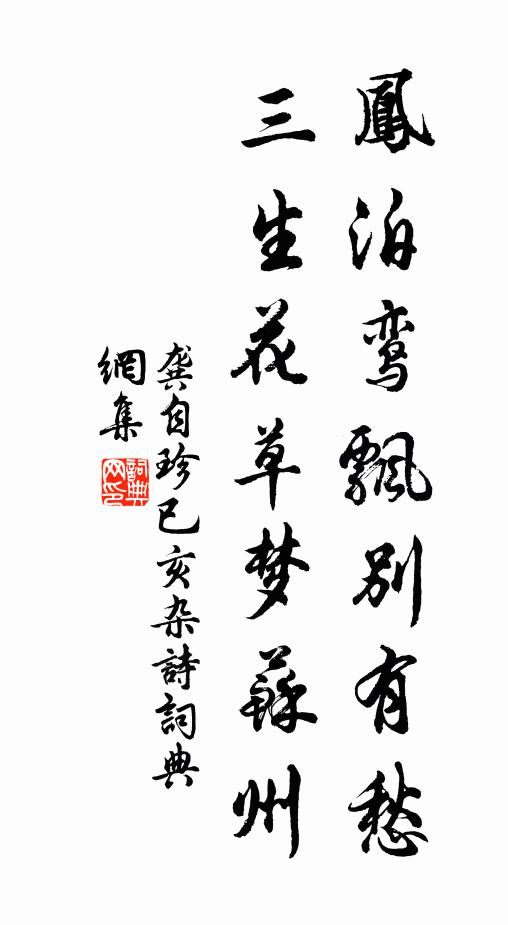 鳳泊鸾飄别有愁
三生花草梦蘇州
龚自珍己亥杂詩詞典
網集
詞典网印